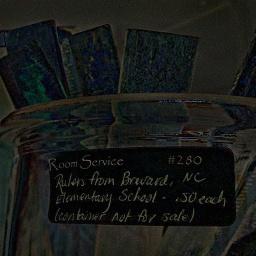 Room Service #280
Rulers from Brevard, NC
Elementary School - .50 each
(container not for sale)